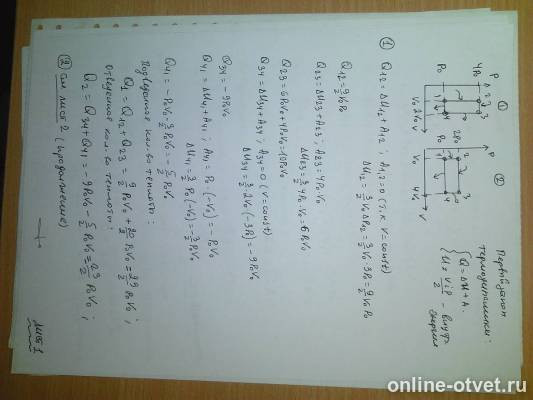 Первый закон
термодинамики:
Q = ΔU + A.
U = i/2 VP - внутр.
энергия
① P
4P₀ 2 3
P₀ 1 4
V₀ 2V₀ V
② P
2P₀ 2 3
P₀ 1 4
V₀ 4V₀ V
① Q₁₂ = ΔU₁₂ + A₁₂ ; A₁₂ = 0 (т.к V=const)
ΔU₁₂ = 3/2 V₀ΔP₁₂ = 3/2 V₀·3P₀ = 9/2 V₀P₀
Q₁₂ = 9/2 V₀P₀
Q₂₃ = ΔU₂₃ + A₂₃ ; A₂₃ = 4P₀V₀
ΔU₂₃ = 3/2 4P₀·V₀ = 6P₀V₀
Q₂₃ = 6P₀V₀ + 4P₀V₀ = 10P₀V₀
Q₃₄ = ΔU₃₄ + A₃₄ ; A₃₄ = 0 (V=const)
ΔU₃₄ = 3/2 2V₀(-3P₀) = -9P₀V₀
Q₃₄ = -9P₀V₀
Q₄₁ = ΔU₄₁ + A₄₁ ; A₄₁ = P₀·(-V₀) = -P₀V₀
ΔU₄₁ = 3/2 P₀(-V₀) = -3/2 P₀V₀
Q₄₁ = -P₀V₀ - 3/2 P₀V₀ = -5/2 P₀V₀
Подведенное кол-во теплоты:
Q₁ = Q₁₂ + Q₂₃ = 9/2 P₀V₀ + 20/2 P₀V₀ = 29/2 P₀V₀ ;
Отведенное кол-во теплоты:
Q₂ = Q₃₄ + Q₄₁ = -9P₀V₀ - 5/2 P₀V₀ = 23/2 P₀V₀ ;
② см лист 2 (продолжение)
Лист 1
online-otvet.ru